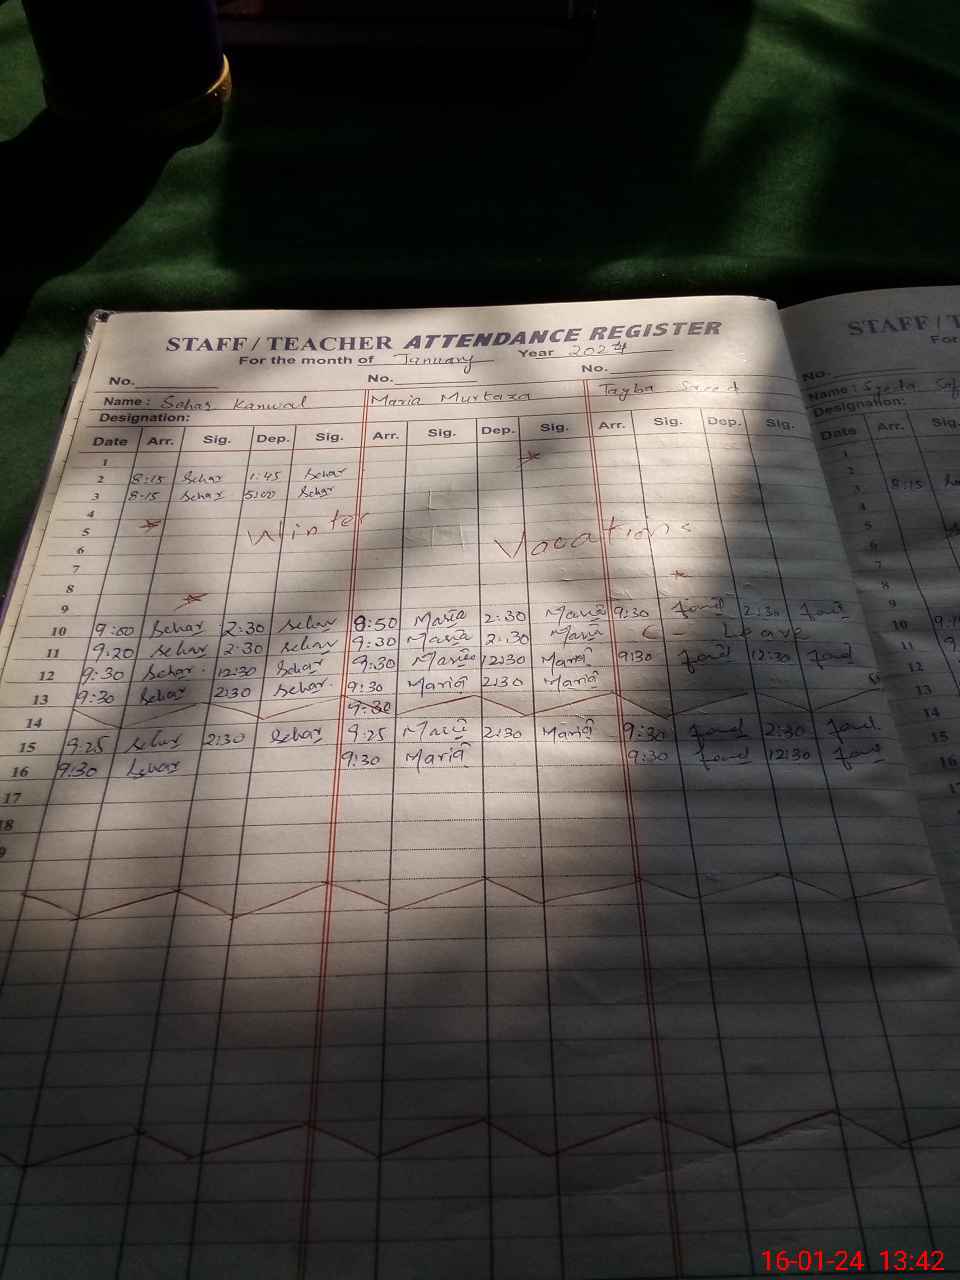 STAFF / TEACHER ATTENDANCE REGISTER
For the month of January Year 2024
No. No. No.
Name : Sehar Kanwal Maria Murtaza Tayba Saeed
Designation:
Date Arr. Sig. Dep. Sig. Arr. Sig. Dep. Sig. Arr. Sig. Dep. Sig.
1
2 8:15 Sehar 1:45 Sehar
3 8:15 Sehar 5:00 Sehar
4
5 Winter Vacations
6
7
8
9
10 9:00 Sehar 2:30 Sehar 8:50 Maria 2:30 Maria 9:30 2:30
11 9:20 Sehar 2:30 Sehar 9:30 Maria 2:30 Maria - C - Leave
12 9:30 Sehar 12:30 Sehar 9:30 Maria 12:30 Maria 9:30 12:30
13 9:30 Sehar 2:30 Sehar 9:30 Maria 2:30 Maria
14 9:30
15 9:25 Sehar 2:30 Sehar 9:25 Maria 2:30 Maria 9:30 2:30
16 9:30 Sehar 9:30 Maria 9:30 12:30
17
18
9
STAFF / T
For
No.
Name : Syeda
Designation:
Date Arr. Sig.
1
2
3 8:15
4
5
6
7
8
9
10
11
12
13
14
15
16
16-01-24 13:42